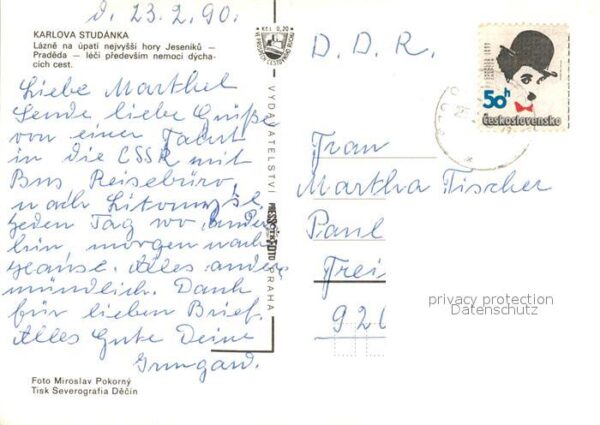 d. 23.2.90.
KARLOVA STUDÁNKA
Lázně na úpatí nejvyšší hory Jeseníků –
Praděda – léčí především nemoci dýcha-
cích cest.
Kčs 0,20
Liebe Martha!
Sende, liebe Grüße
von einer Fahrt
in die CSSR mit
Bus Reisebüro,
nach Litomyšl,
jeden Tag wo anders
hin morgen nach
Hause. Alles andere
mündlich. Dank
für lieben Brief.
Alles Gute Deine
Irmgard.
Foto Miroslav Pokorný
Tisk Severografia Děčín
VYDAVATELSTVÍ PRESSFOTO PRAHA
D. D. R.
50h
Československo
Frau
Martha Fischer
Paul
Frei
92
privacy protection
Datenschutz